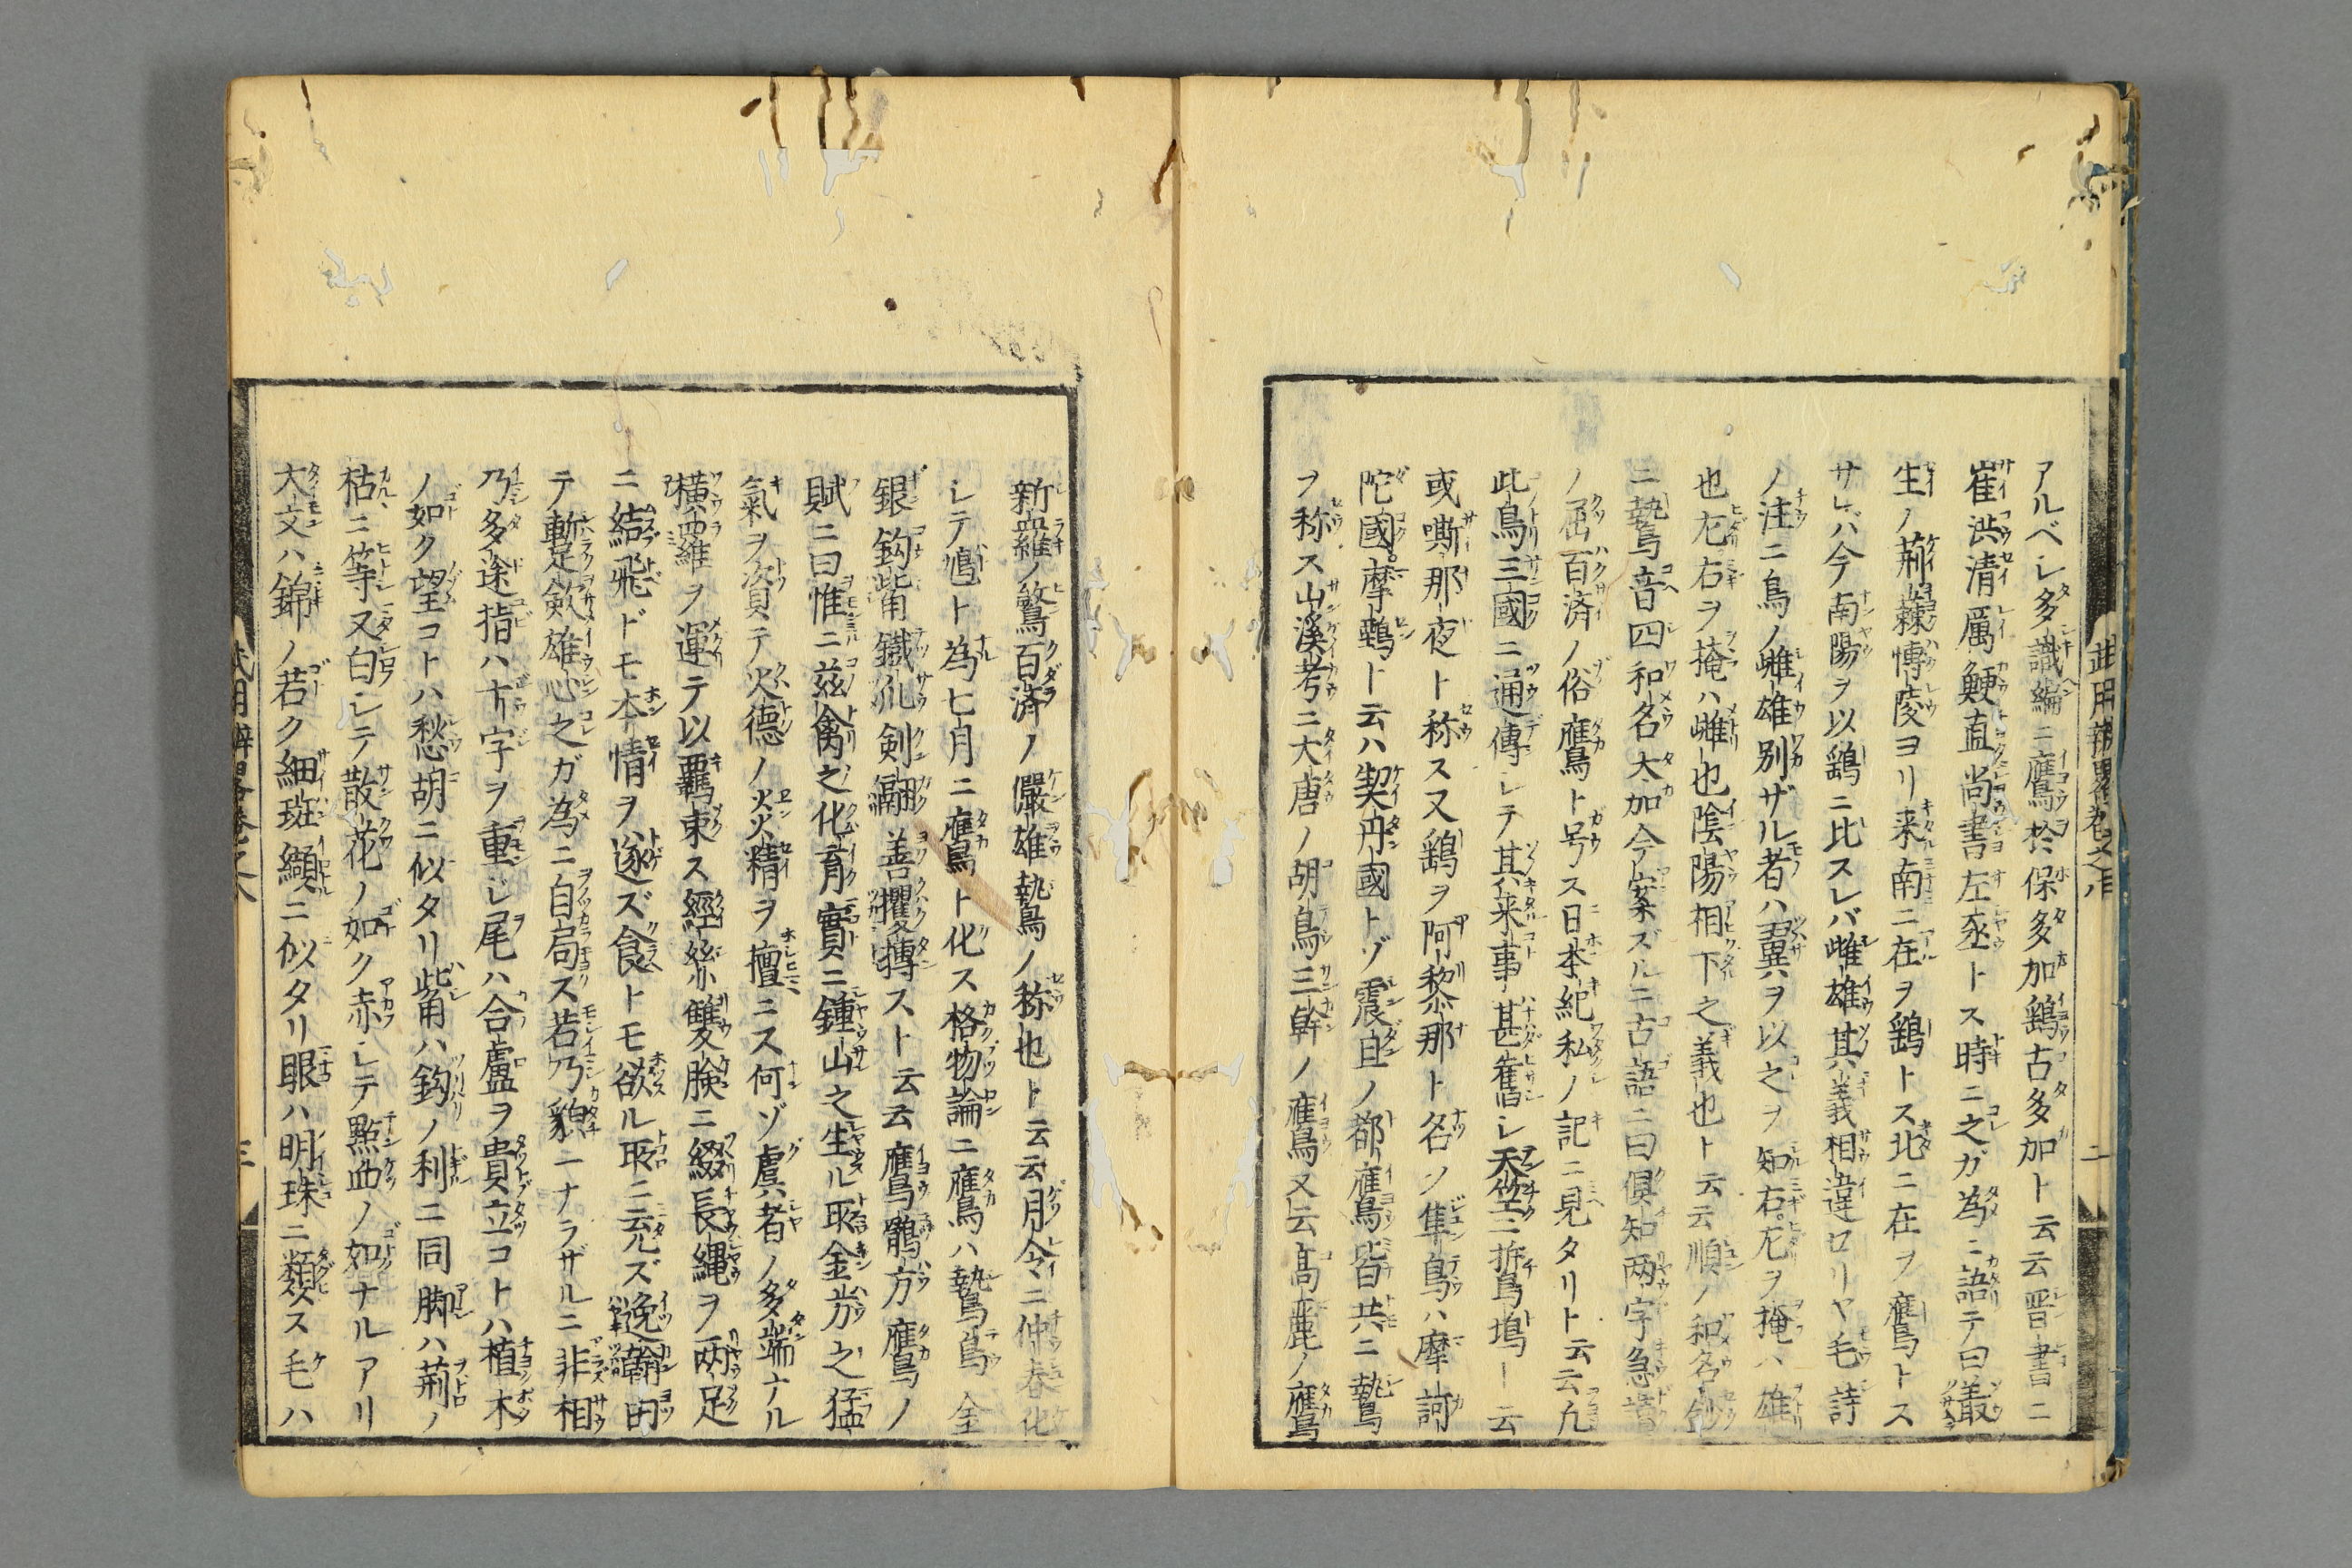 アルベレ多識編ニ鷹於保多加鷂古多加ト云云晋書ニ
崔洪清厲鯁直尚書左丞トス時ニ之ガ為ニ語テ曰叢
生ノ荊蕀慱陵ヨリ来南ニ在ヲ鷂トス北ニ在ヲ鷹トス
サレバ今南陽ヲ以鷂ニ比スレバ雌雄其義相違セリヤ毛詩
ノ注ニ鳥ノ雌雄別ザル者ハ翼ヲ以之ヲ知右左ヲ掩ハ雄
也左右ヲ掩ハ雌也陰陽相下之義也ト云云順ノ和名鈔
ニ鷙音四和名大加今案ズルニ古語ニ曰倶知两字急讀
ノ屈百済ノ俗鷹ト号ス日本紀私ノ記ニ見タリト云云凡
此鳥三國ニ通傳レテ其来事甚舊レ天竺ニ鳥ト云
或嘶那夜ト称ス又鷂ヲ阿黎那ト名ソ隼鳥ハ摩訶
陀國摩鵜ト云ハ契丹國トゾ震旦ノ郡鷹皆共ニ鷙
ヲ称ス山溪考ニ大唐ノ胡鳥三幹ノ鷹又云高麗ノ鷹
新羅ノ鷙百済ノ儼雄鷙ノ称也ト云云月令ニ仲春化
レテ鳩ト為七月ニ鷹ト化ス格物論ニ鷹ハ鷙鳥金
銀鈎觜鐵爪剣翮善攫摶スト云云鷹鶻方鷹ノ
賦ニ曰惟ニ茲禽之化育實ニ鍾山之生ル所金方之猛
氣ヲ資テ火德ノ炎精ヲ擅ニス何ゾ虞者ノ多端ナル
横羅ヲ運テ以羈束ス經絲雙瞼ニ綴長縄ヲ两足
ニ結飛ドモ本情ヲ遂ズ食トモ欲ル所ニ充ズ逸翰由
テ暫歛雄心之ガ為ニ自局ス若乃貌一ナラザルニ非相
乃多途指ハ十字ヲ重ジ尾ハ合盧ヲ貴立コトハ植木
ノ如ク望コトハ愁胡ニ似タリ觜ハ鈎ノ利ニ同脚ハ荊ノ
枯ニ等又白レテ散花ノ如ク赤レテ點血ノ如ナルアリ
大文ハ錦ノ若ク細斑ハ纈ニ似タリ眼ハ明珠ニ類ス毛ハ